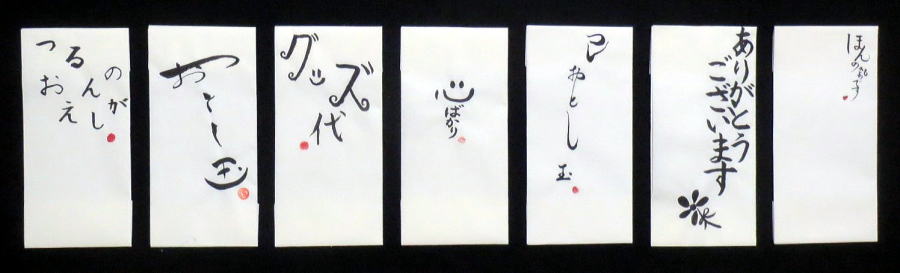 つるの
おんが
えし
おとし玉
グッズ
代
心ばかり
巳
おとし玉
ありがとう
ございます
ほんの